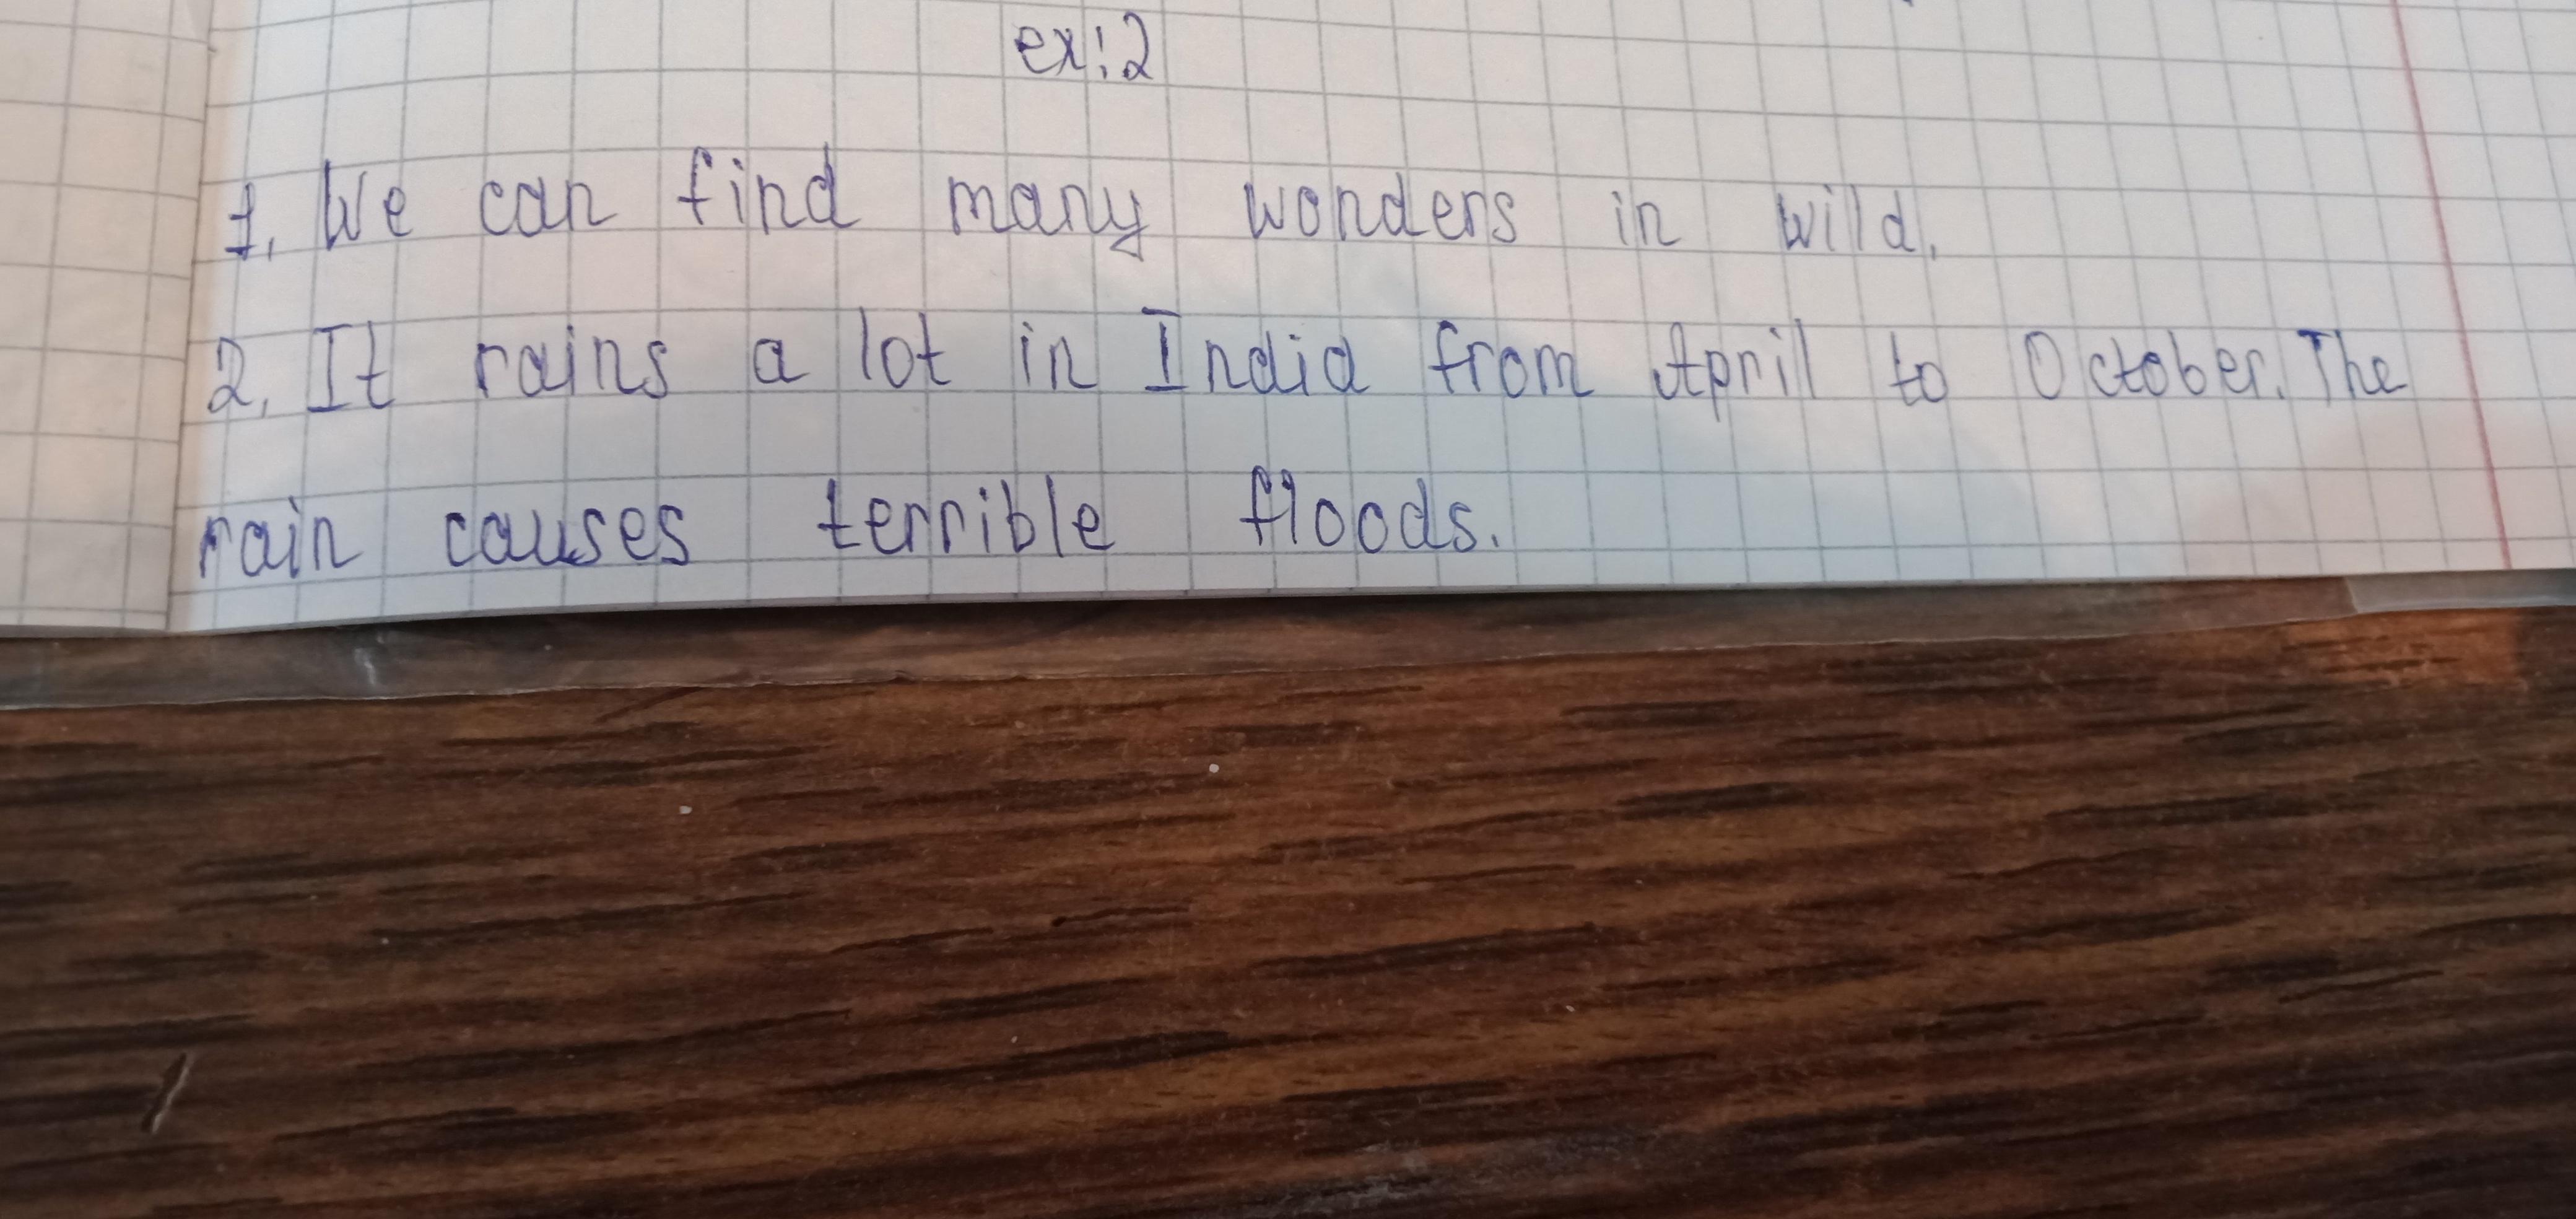 ex:2
1. We can find many wonders in wild.
2. It rains a lot in India from April to October. The
rain causes terrible floods.